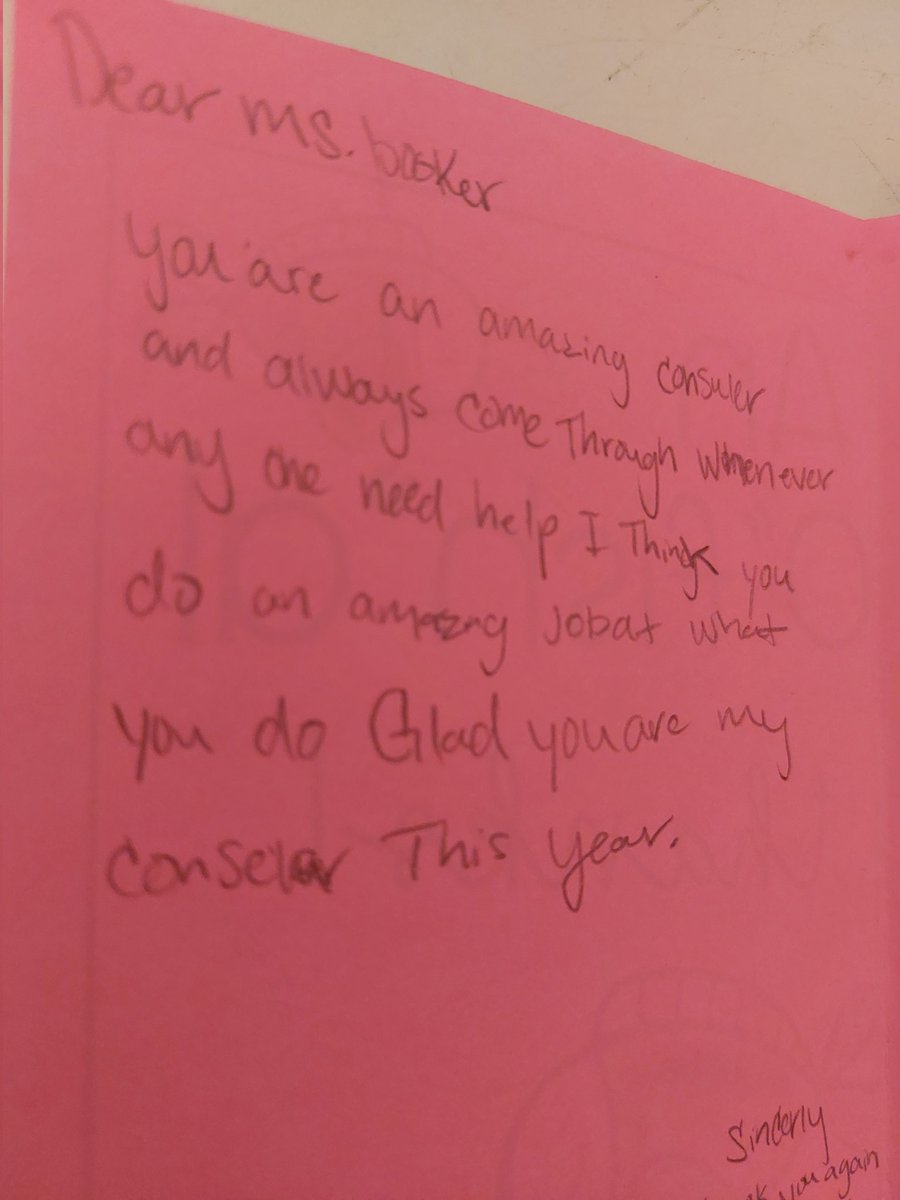 Dear ms. booker
you are an amazing consuler
and always come Through Whenever
any one need help I Think you
do an amazing Jobat what
you do Glad you are my
conseler This year.
Sincerly
you again